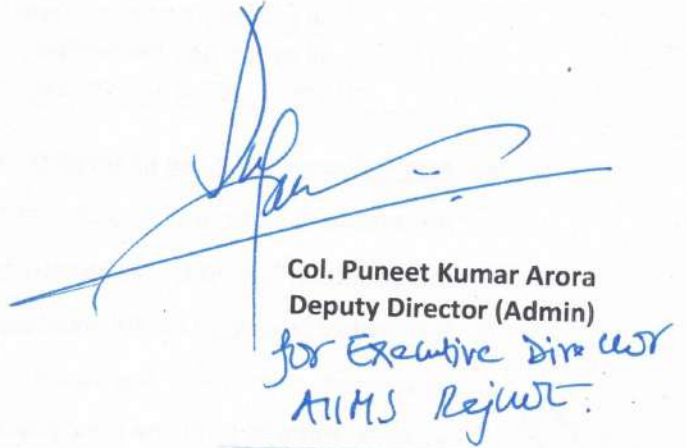 Col. Puneet Kumar Arora
Deputy Director (Admin)
for Executive Director
AIIMS Rajkot.